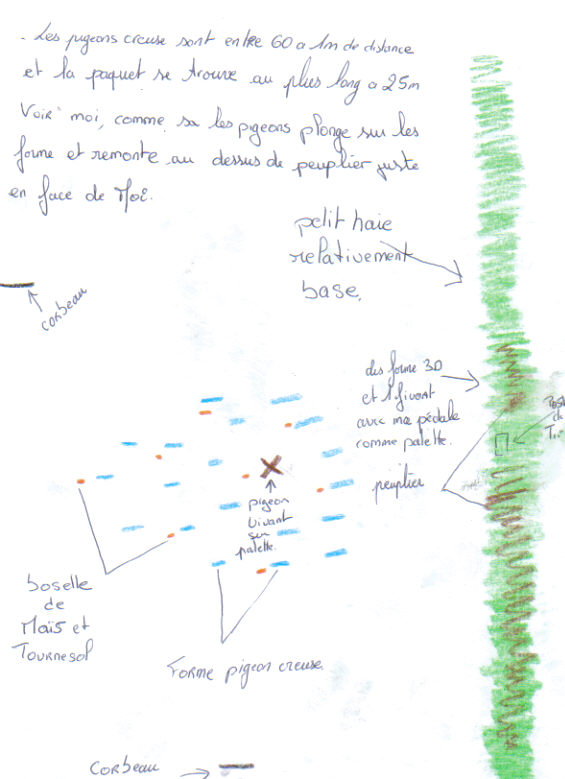 - Les pigeons creuse sont entre 60 a 1m de distance
et la paquet se trouve au plus long a 25m
Voir moi, comme sa les pigeons plonge sur les
forme et remonte au dessus de peuplier juste
en face de Moi.
petit haie
relativement
base.
corbeau
des forme 3D
et 1 vivant
avec ma pédale
comme palette.
peuplier
pigeon
vivant
sur
palette.
boselle
de
Maïs et
Tournesol
Forme pigeon creuse.
Corbeau